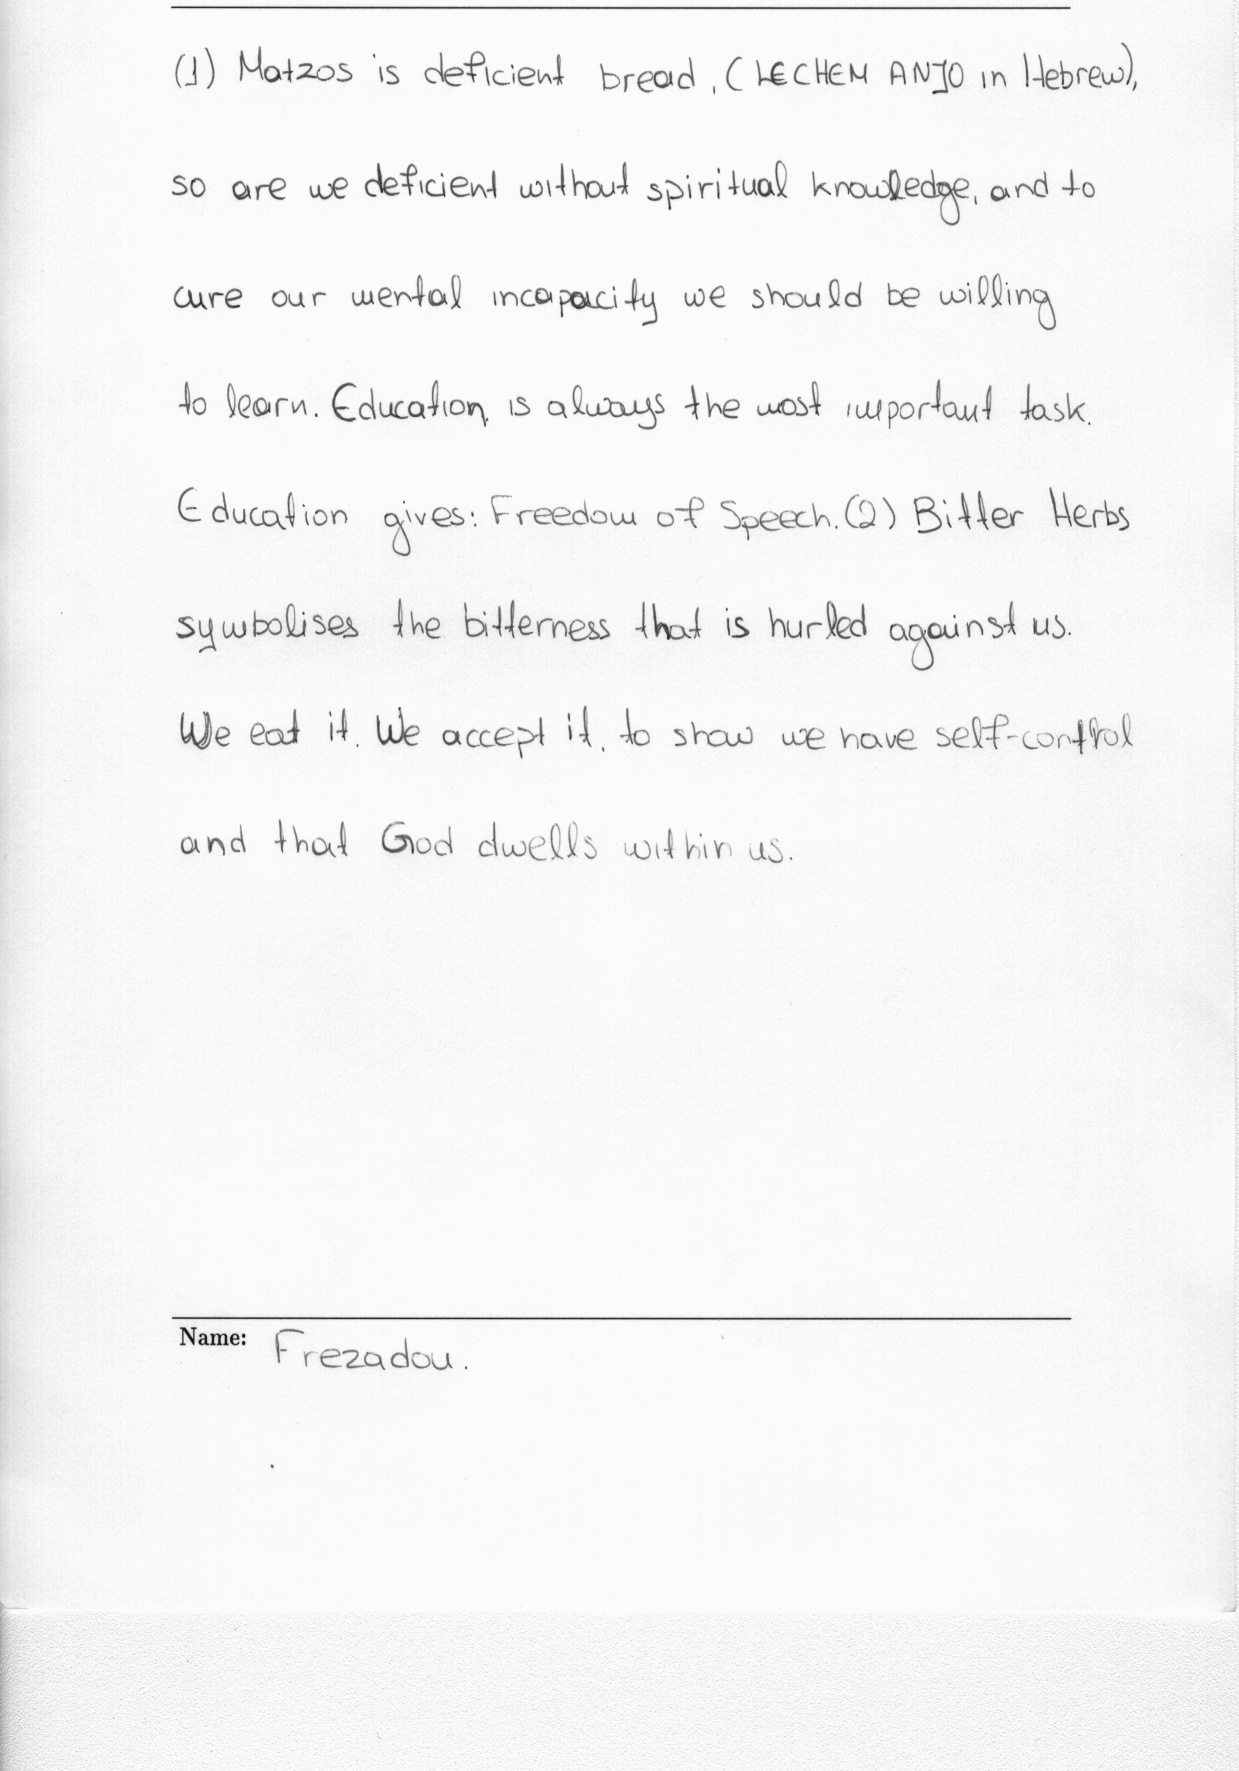 (1) Matzos is deficient bread, (LECHEM ANJO in Hebrew),
so are we deficient without spiritual knowledge, and to
cure our mental incapacity we should be willing
to learn. Education is always the most important task.
Education gives: Freedom of Speech. (2) Bitter Herbs
symbolises the bitterness that is hurled against us.
We eat it. We accept it, to show we have self-control
and that God dwells within us.
Name: Frezadou.